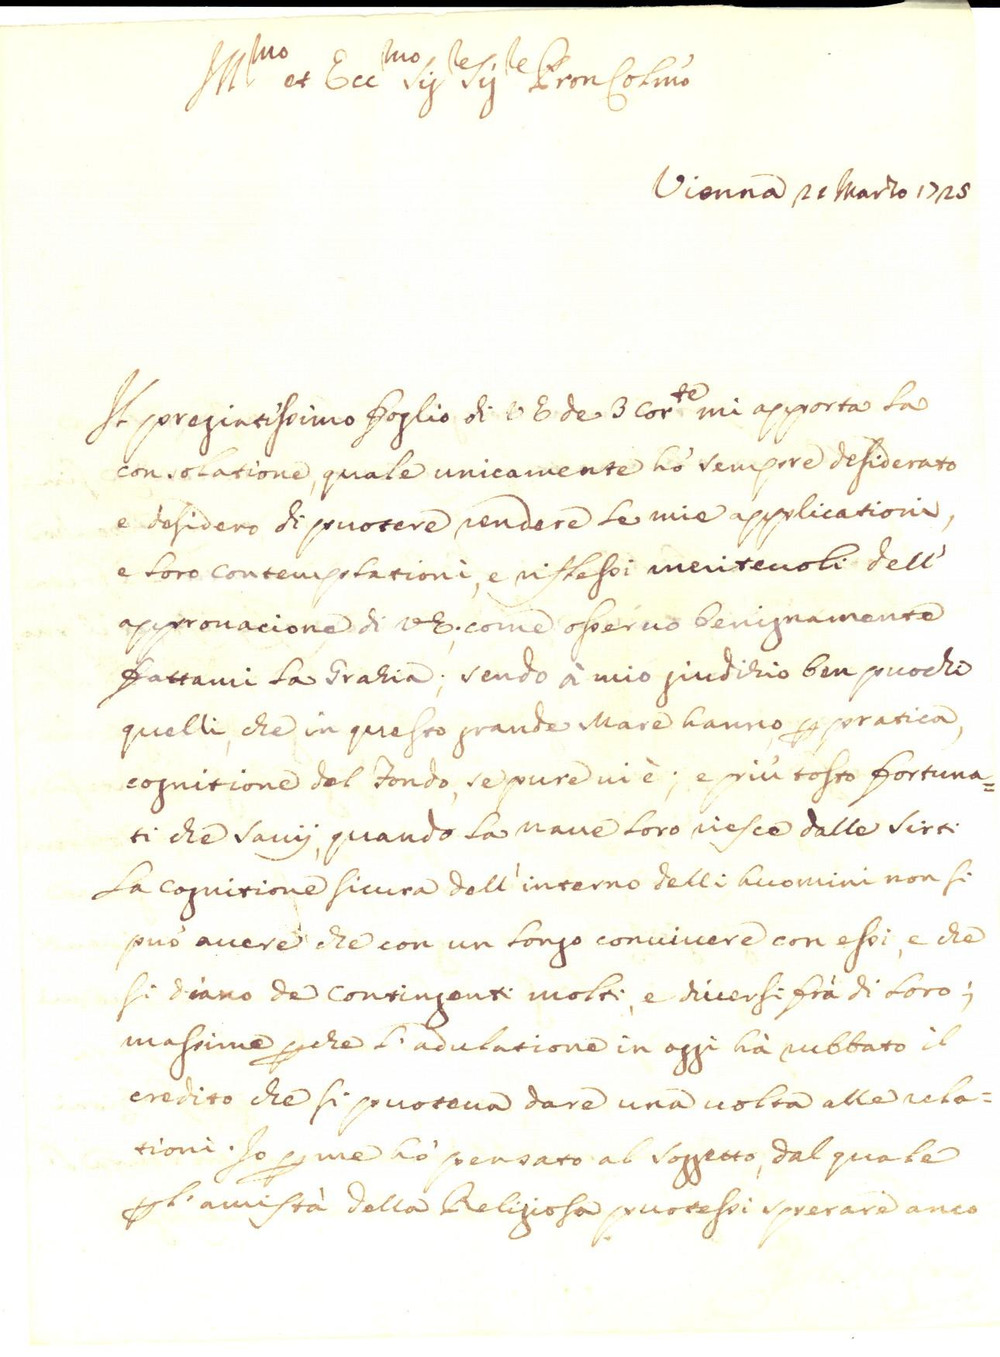 Ill.mo et Ecc.mo Sig.re Sig.re Pron Colmo
Vienna 21 Marzo 1725
Il pregiatissimo foglio di V E de 3 cor.te mi apporta la
consolatione, quale unicamente hò sempre desiderato
e desidero di puotere rendere le mie applicationi,
e loro contemplationi, e riflessi meritevoli dell'
approvacione di V E; come osservo benignamente
fattami la Grazia; sendo à mio giudizio ben puochi
quelli, che in questo grande Mare hanno, p pratica,
cognitione del Fondo, se pure vi è; e più tosto fortuna=
ti che savij, quando la nave loro riesce dalle sirti
La cognitione sicura dell'interno delli huomini non si
può avere che con un longo convivere con essi, e che
si diano de contingenti molti, e diversi frà di loro;
massime pche l'adulatione in oggi hà rubbato il
credito che si puoteva dare una volta alle rela=
tioni. Io p me hò pensato al soggetto, dal quale
p l'amistà della Religiosa puotessi sperare anco